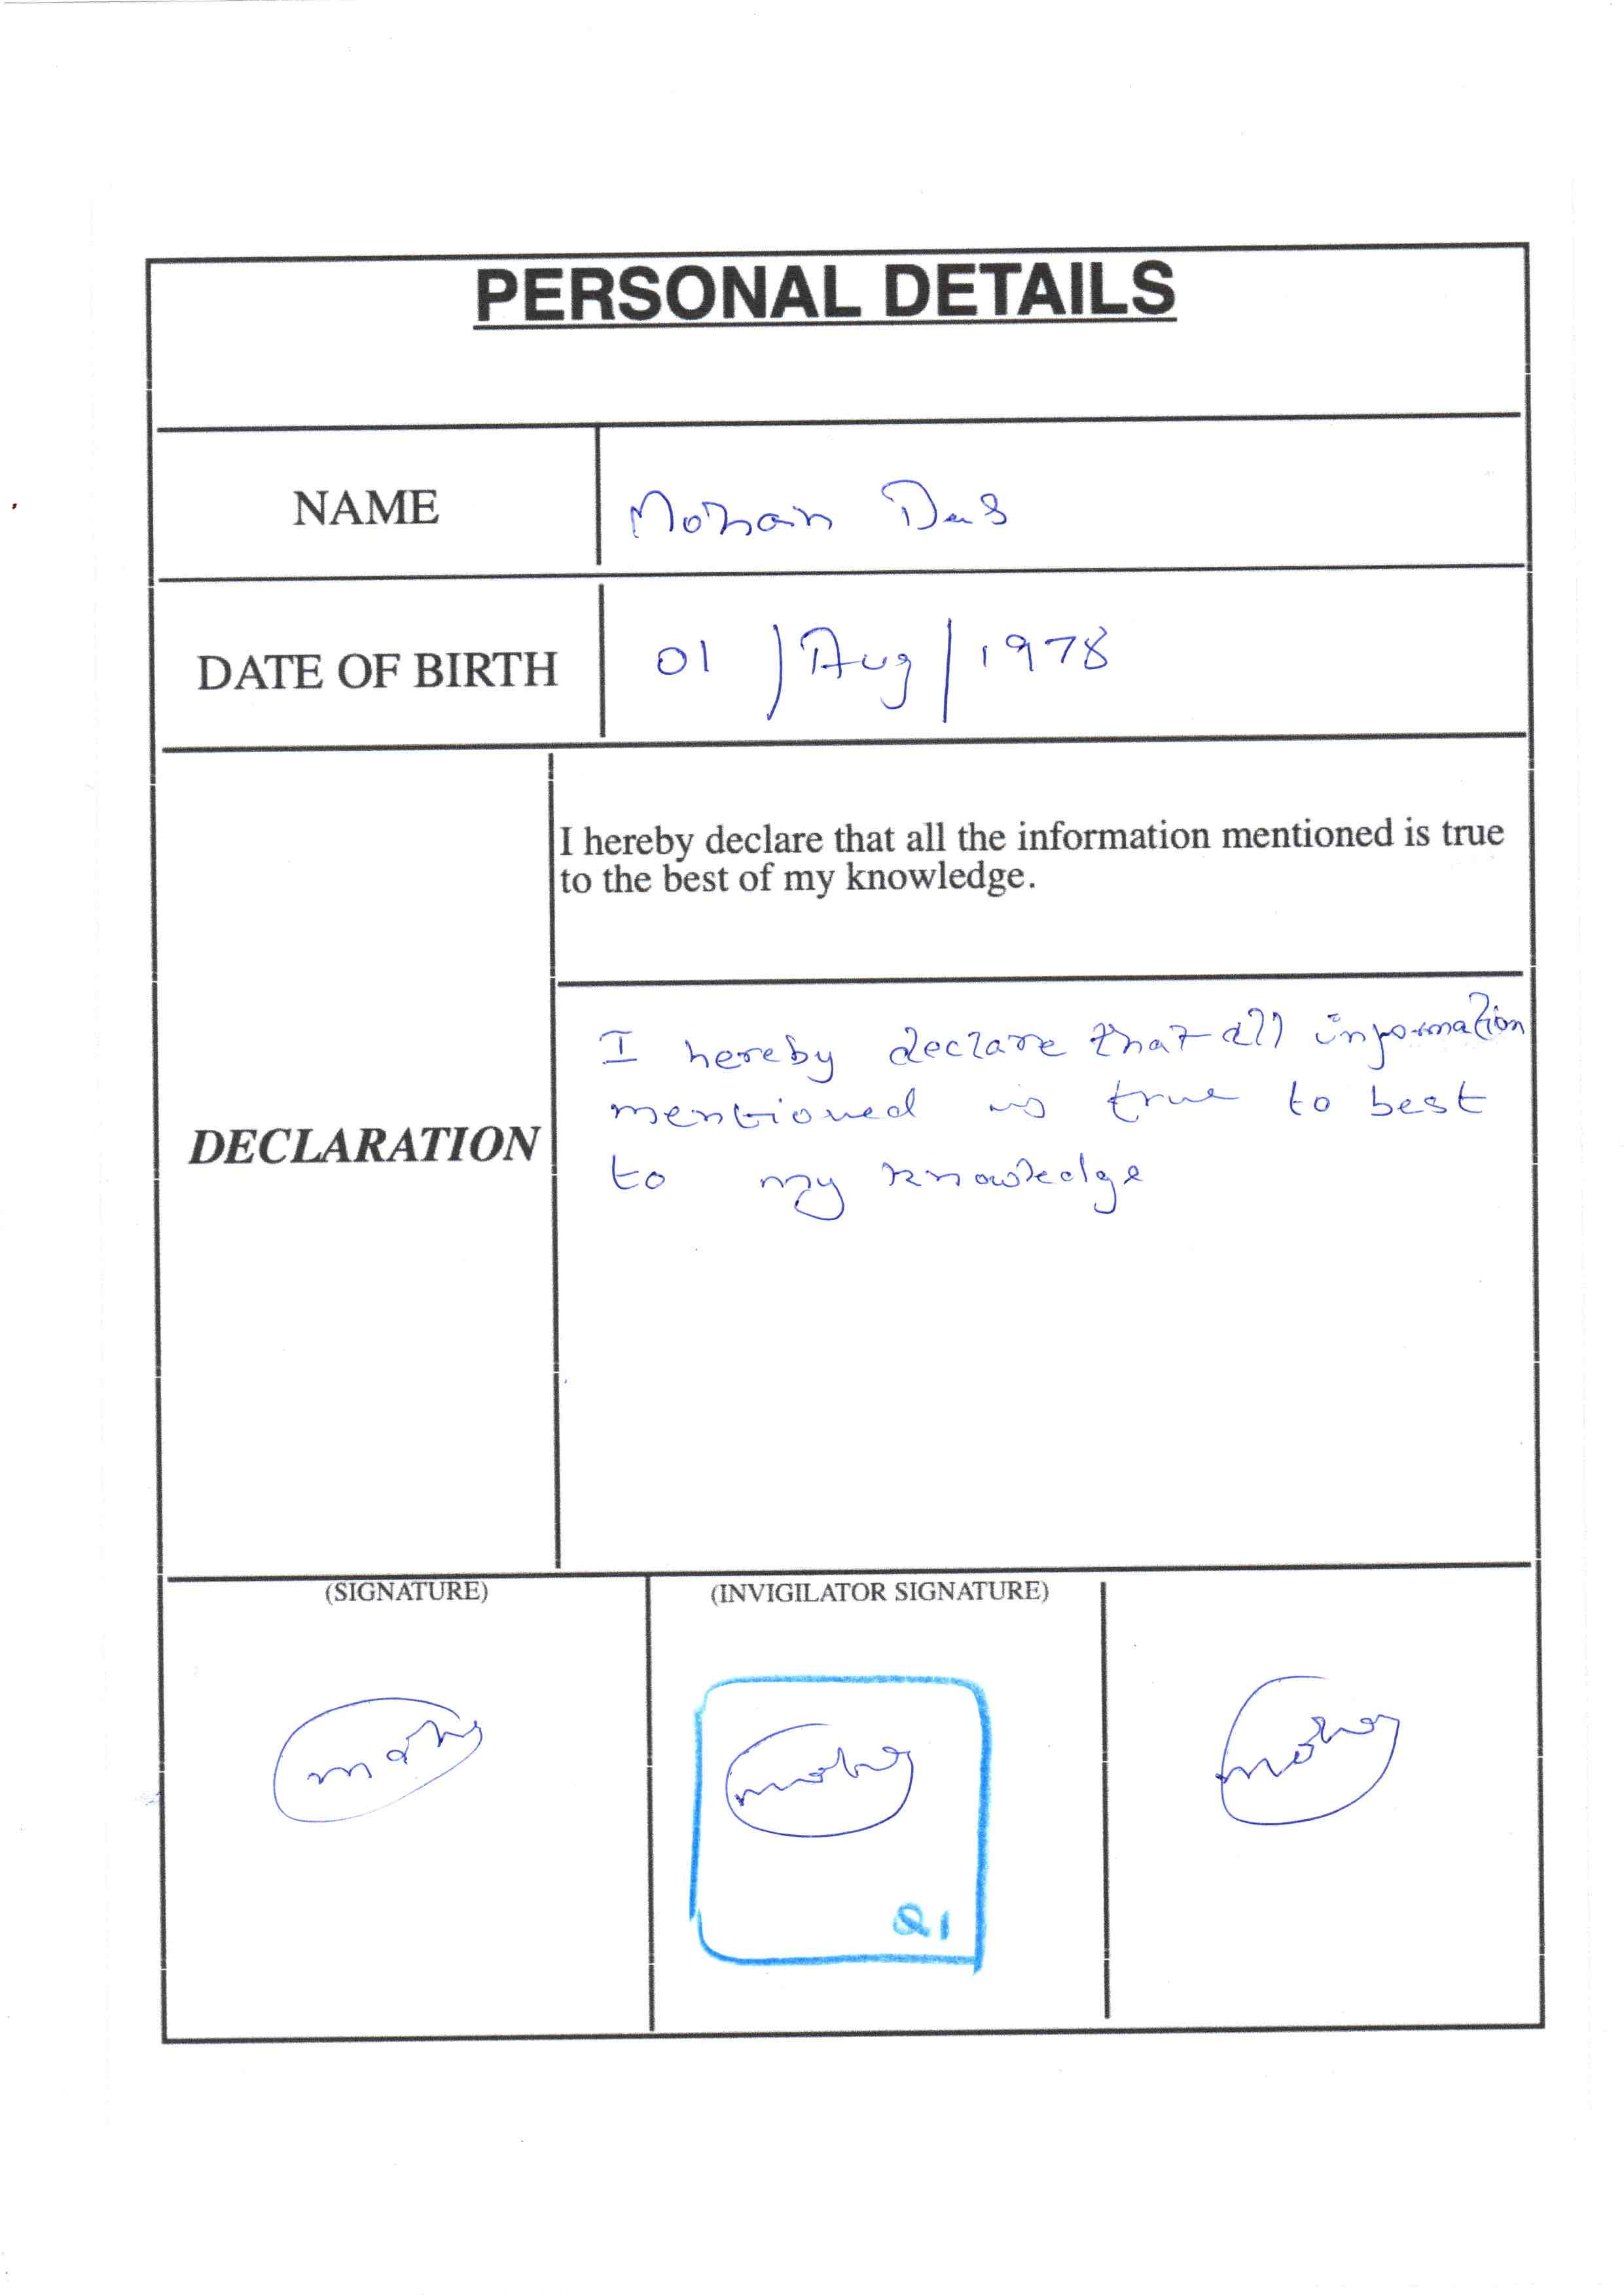 PERSONAL DETAILS
NAME
Mohan Das
DATE OF BIRTH
01 / Aug / 1978
I hereby declare that all the information mentioned is true
to the best of my knowledge.
DECLARATION
I hereby declare that all information
mentioned is true to best
to my knowledge
(SIGNATURE)
(INVIGILATOR SIGNATURE)
Q1